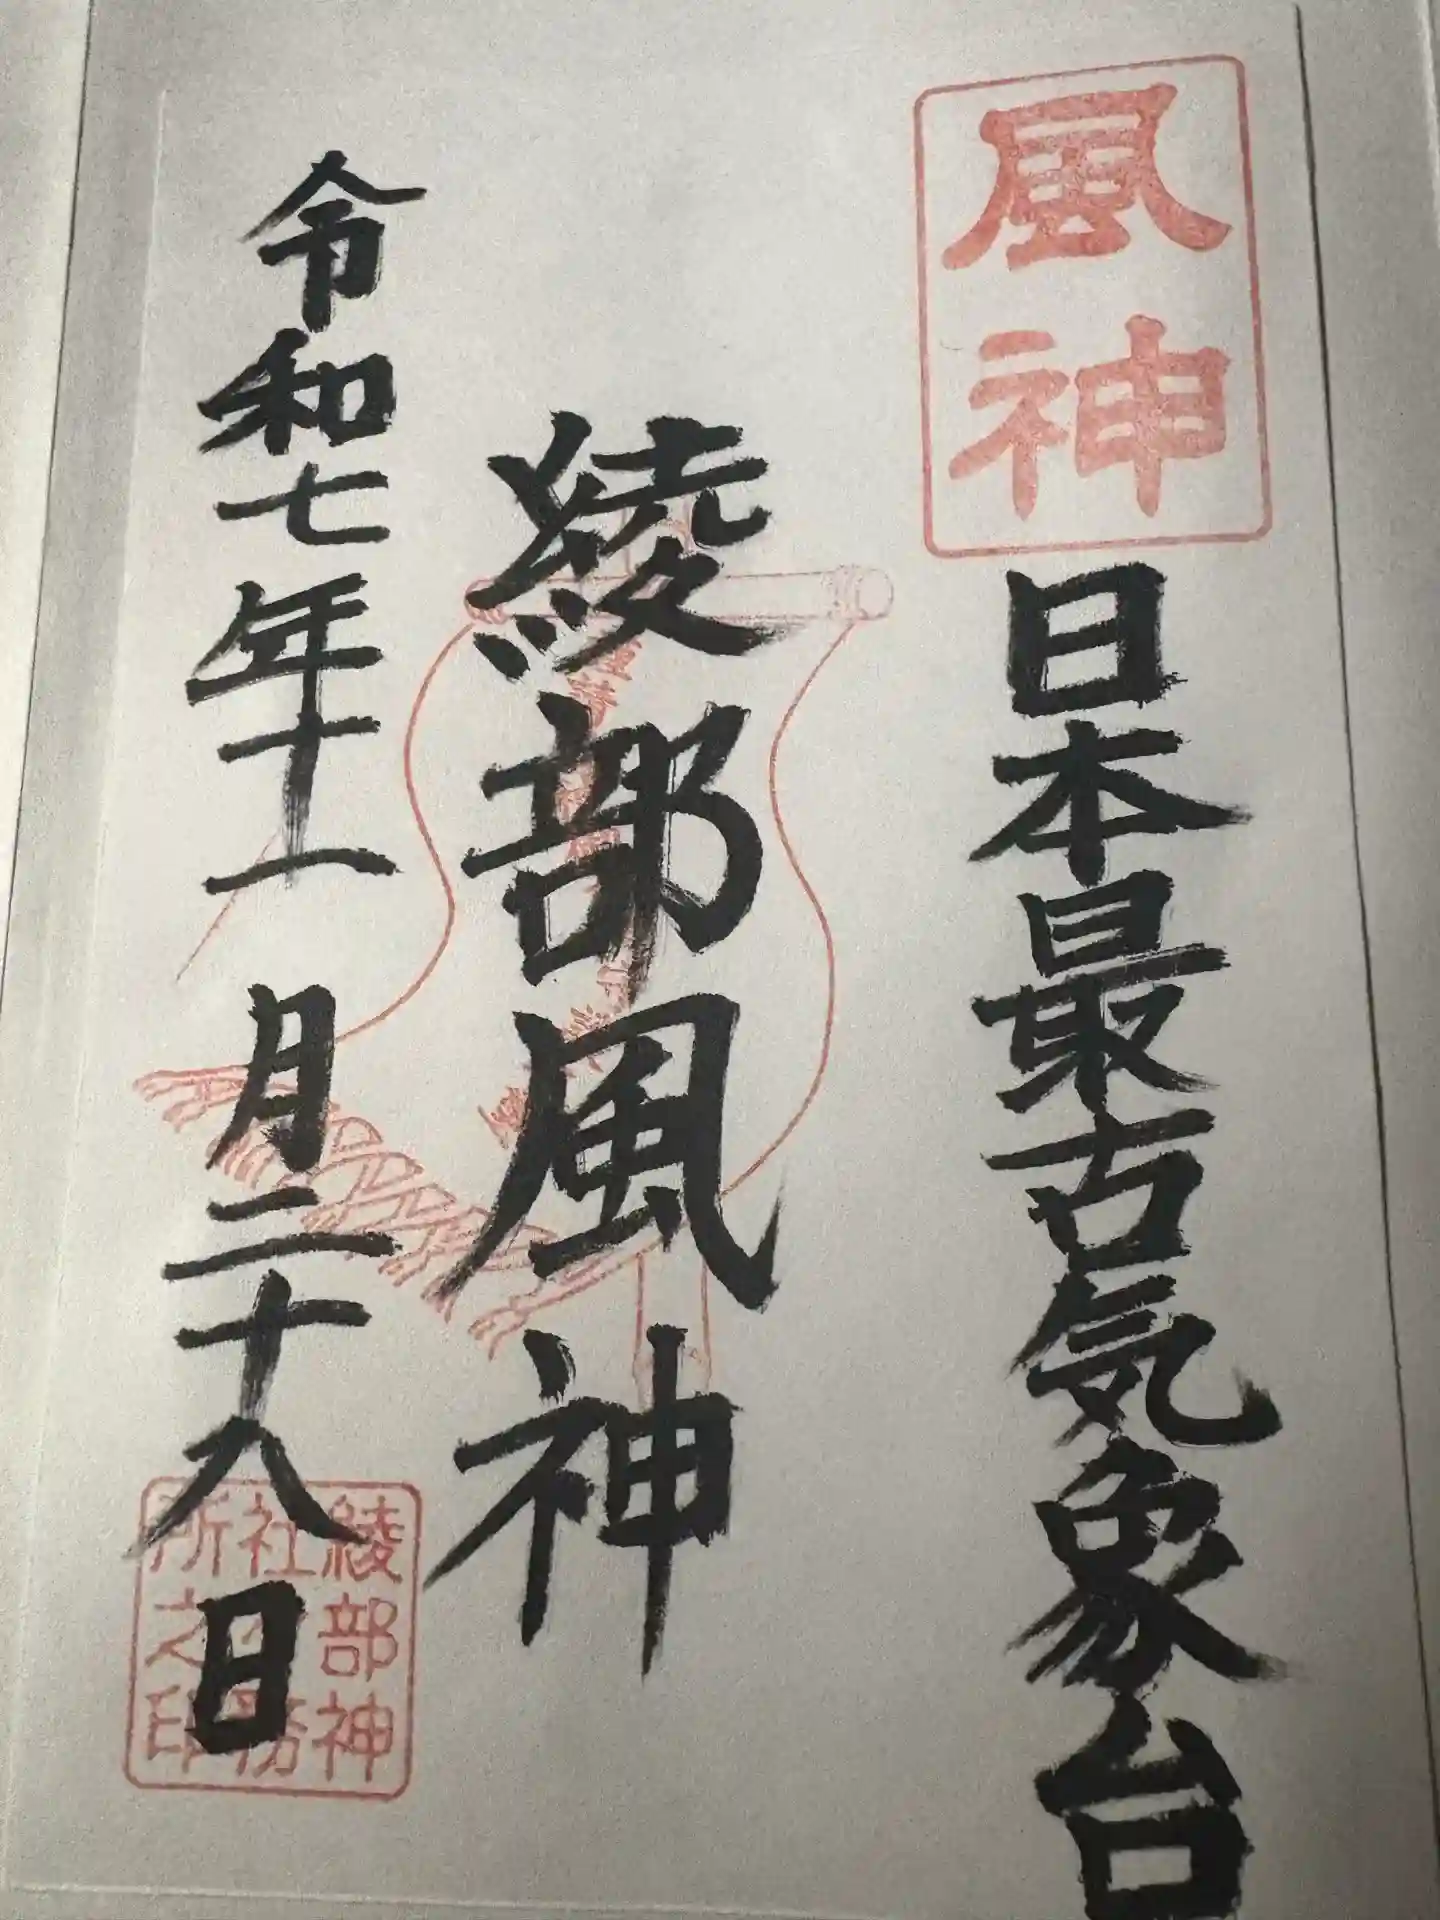 風神
日本最古気象台
綾部風神
令和七年十一月二十八日
綾部神
社務
所之印